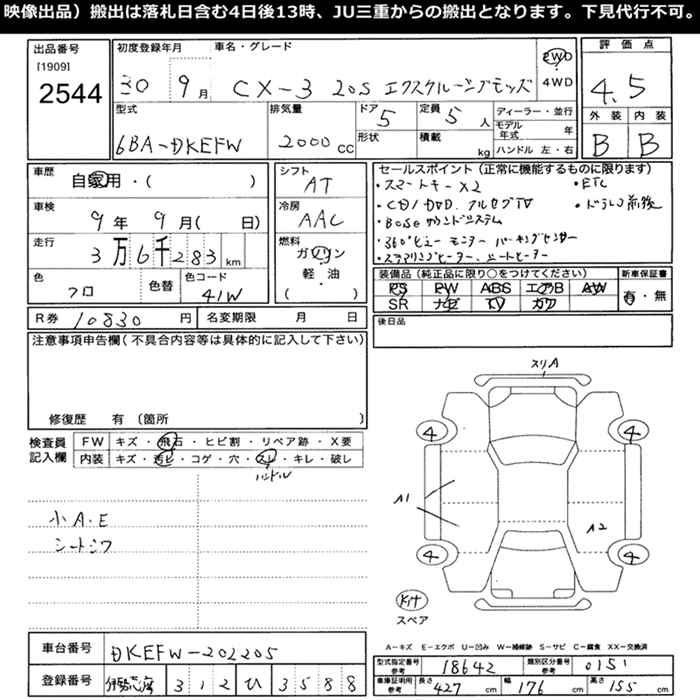 映像出品）搬出は落札日含む4日後13時、JU三重からの搬出となります。下見代行不可。
出品番号
[1909]
2544
初度登録年月
30 9月
車名・グレード
CX-3 20S エクスクルーシブモッズ
2WD
4WD
評価点
4.5
外装 内装
B B
型式
6BA-DKEFW
排気量
2000 CC
ドア
5
形状
定員
5 人
積載
kg
ディーラー・並行
モデル年式 年
ハンドル 左・右
車歴
自家用・( )
車検
9年 9月( 日)
走行
3万6千283km
色
クロ
色替
色コード
41W
シフト
AT
冷房
AAC
燃料
ガソリン
軽・油
( )
セールスポイント（正常に機能するものに限ります）
・スマートキーX2
・ETC
・CD/DVD.フルセグTV
・ドラレコ前後
・BOSEサウンドシステム
・360°ビューモニター パーキングセンサー
・ステアリングヒーター、シートヒーター
装備品（純正品に限り○をつけてください）
PS PW ABS エアB AW
SR ナビ TV カワ
新車保証書
有・無
R券 10830 円
名変期限 月 日
後日品
注意事項申告欄（不具合内容等は具体的に記入して下さい）
修復歴 有（箇所 ）
検査員
記入欄
FW キズ・飛石・ヒビ割・リペア跡・X要
内装 キズ・汚レ・コゲ・穴・スレ・キレ・破レ
ハンドル
小A.E
シートシワ
スリA
4 4
A1
A2
4 4
Kit
スペア
A－キズ E－エクボ U－凹み W－補修跡 S－サビ C－腐食 XX－交換済
車台番号 DKEFW-202205
登録番号 312 ひ 3588
型式指定番号 参考 18642
類別区分番号 参考 0151
車庫証明用 参考 長さ 427 cm 幅 176 cm 高さ 155 cm